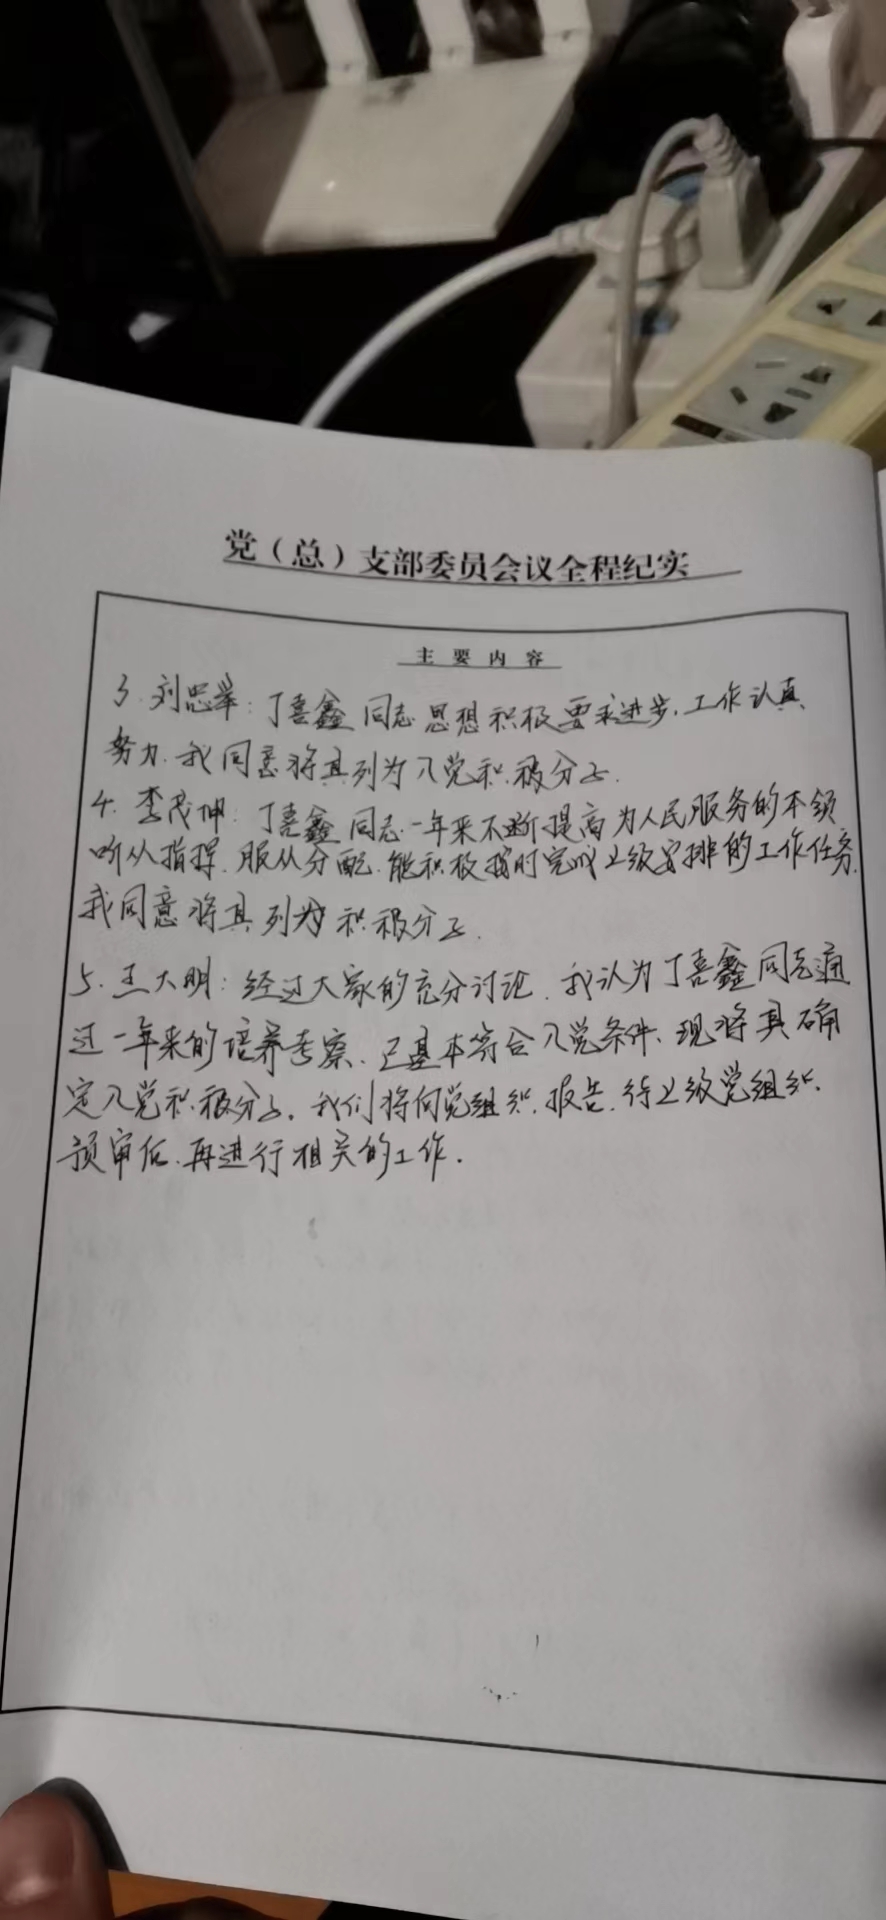 党（总）支部委员会议全程纪实
主要内容
3. 刘忠举：丁喜鑫同志思想积极要求进步，工作认真、
努力，我同意将其列为入党积极分子.
4. 李茂坤：丁喜鑫同志一年来不断提高为人民服务的本领
听从指挥、服从分配、能积极按时完成上级安排的工作任务，
我同意将其列为积极分子.
5. 王大明：经过大家的充分讨论，我认为丁喜鑫同志通
过一年来的培养考察、已基本符合入党条件、现将其确
定入党积极分子，我们将向党组织报告，待上级党组织
预审后，再进行相关的工作.